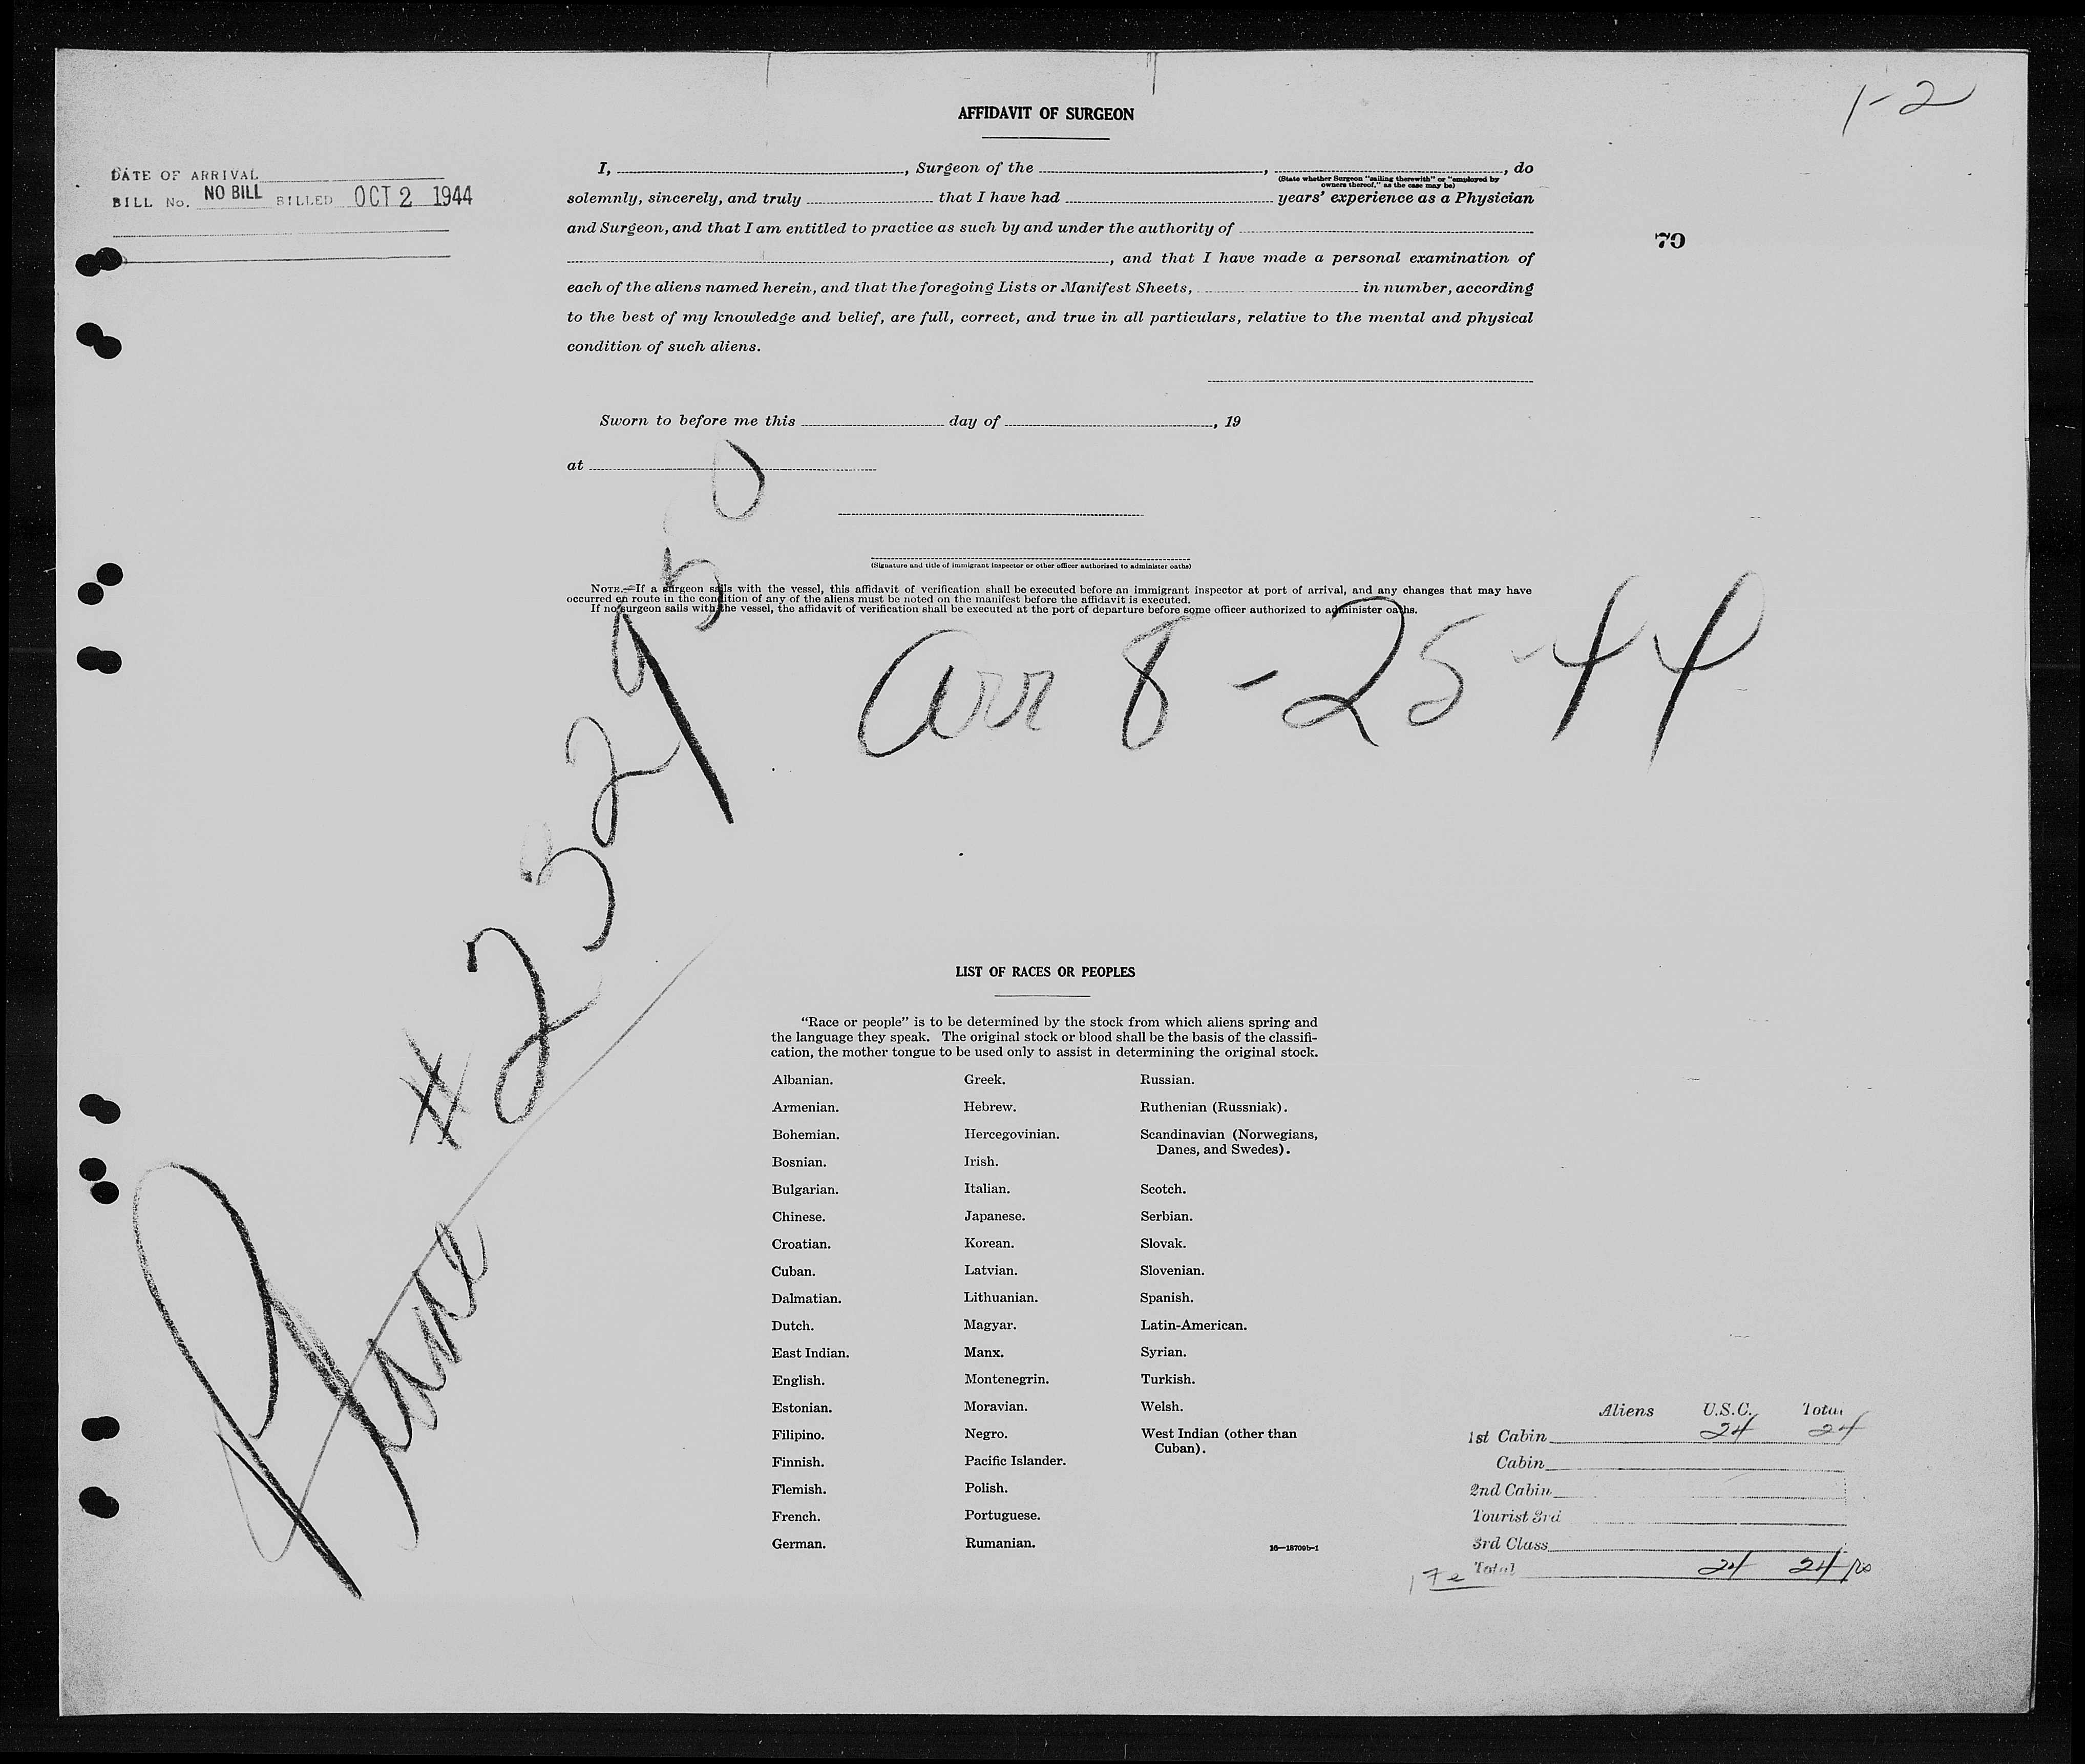 1-2
AFFIDAVIT OF SURGEON
DATE OF ARRIVAL
BILL No. NO BILL BILLED OCT 2 1944
I, , Surgeon of the , , do
(State whether Surgeon "sailing therewith" or "employed by
owners thereof," as the case may be)
solemnly, sincerely, and truly that I have had years' experience as a Physician
and Surgeon, and that I am entitled to practice as such by and under the authority of
, and that I have made a personal examination of
each of the aliens named herein, and that the foregoing Lists or Manifest Sheets, in number, according
to the best of my knowledge and belief, are full, correct, and true in all particulars, relative to the mental and physical
condition of such aliens.
79
Sworn to before me this day of , 19
at
(Signature and title of immigrant inspector or other officer authorized to administer oaths)
NOTE.—If a surgeon sails with the vessel, this affidavit of verification shall be executed before an immigrant inspector at port of arrival, and any changes that may have
occurred en route in the condition of any of the aliens must be noted on the manifest before the affidavit is executed.
If no surgeon sails with the vessel, the affidavit of verification shall be executed at the port of departure before some officer authorized to administer oaths.
arr 8-25-44
Plane #2329
LIST OF RACES OR PEOPLES
"Race or people" is to be determined by the stock from which aliens spring and
the language they speak. The original stock or blood shall be the basis of the classifi-
cation, the mother tongue to be used only to assist in determining the original stock.
Albanian. Greek. Russian.
Armenian. Hebrew. Ruthenian (Russniak).
Bohemian. Hercegovinian. Scandinavian (Norwegians,
Danes, and Swedes).
Bosnian. Irish.
Bulgarian. Italian. Scotch.
Chinese. Japanese. Serbian.
Croatian. Korean. Slovak.
Cuban. Latvian. Slovenian.
Dalmatian. Lithuanian. Spanish.
Dutch. Magyar. Latin-American.
East Indian. Manx. Syrian.
English. Montenegrin. Turkish.
Estonian. Moravian. Welsh.
Filipino. Negro. West Indian (other than
Cuban).
Finnish. Pacific Islander.
Flemish. Polish.
French. Portuguese.
German. Rumanian.
16—18709b-1
Aliens U.S.C. Total
1st Cabin 24 24
Cabin
2nd Cabin
Tourist 3rd
3rd Class
Total 24 24